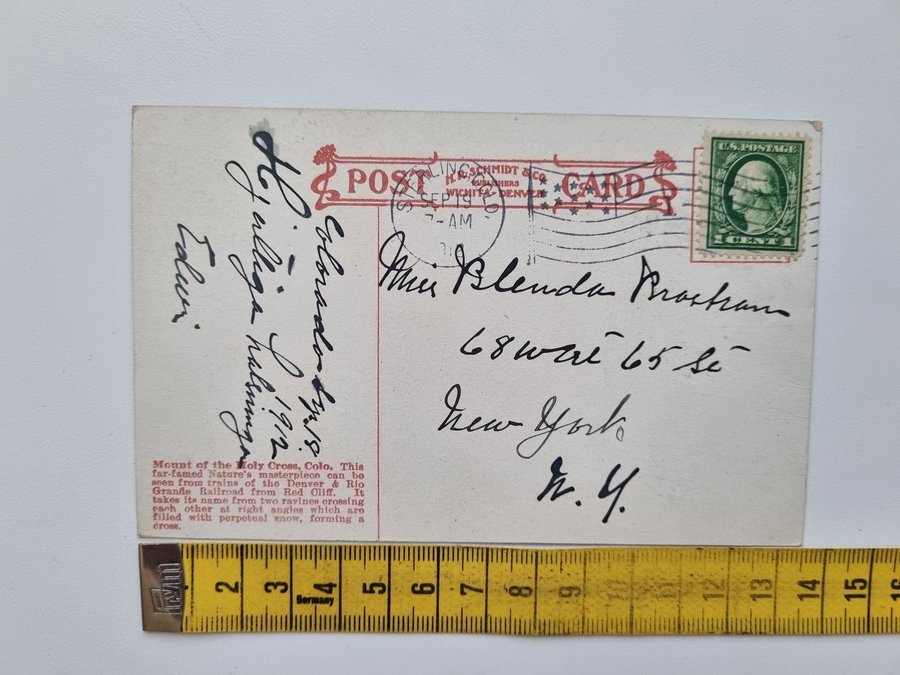 POST CARD
H. R. SCHMIDT & CO.
PUBLISHERS
WICHITA-DENVER
STERLING, COLO.
SEP 19
7-AM
U.S. POSTAGE
1 CENT 1
Miss Blenda Brostrom
68 West 65 St
New York
N. Y.
Colorado
18.
1912
Hjärtliga hälsningar
Edwin
Mount of the Holy Cross, Colo. This
far-famed Nature's masterpiece can be
seen from trains of the Denver & Rio
Grande Railroad from Red Cliff. It
takes its name from two ravines crossing
each other at right angles which are
filled with perpetual snow, forming a
cross.
2 3 4 5 6 7 8 9 10 11 12 13 14 15 16
Germany